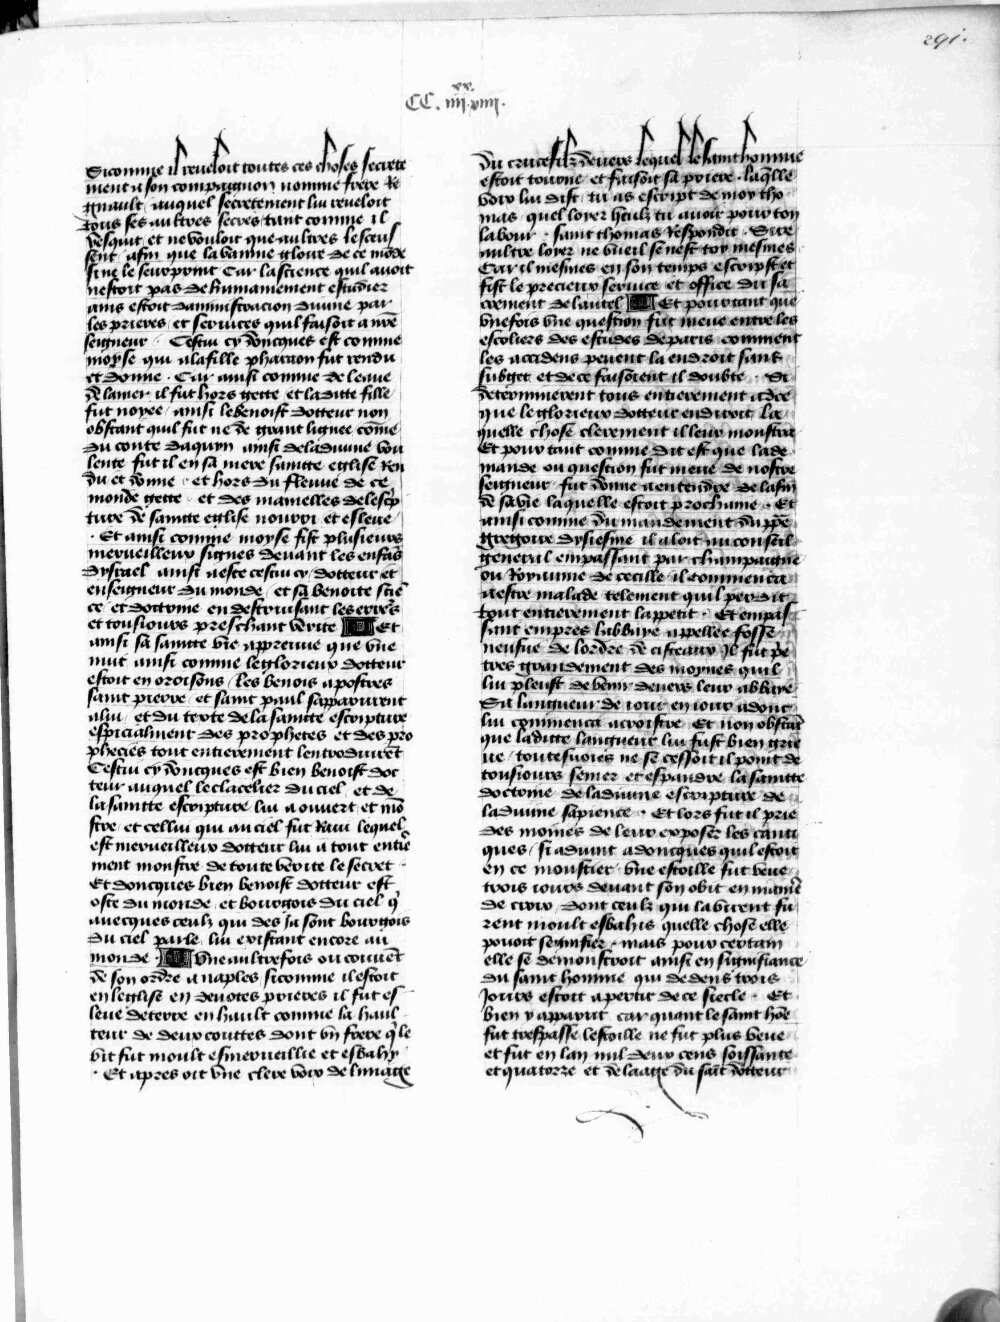 291.
CC. iiii xx. xviii.
Sicomme il reveloit toutes ces choses secrete
ment a son compaignon nomme frere Re
gnault / auquel secretement lui reveloit
tous ses aultres secres / tant comme il
vesquit et ne vouloit que aultres le sceus
sent / afin que la vainne gloire de ce mõde
si ne le seurprint Car la science quil avoit
nestoit pas de humainement estudier
ains estoit daministracion divine par
les prieres et services quil faisoit a nrẽ
seigneur · Cestui cy doncques est comme
moyse qui a la fille pharaon fut rendu
et donne · Car ainsi comme de leaue
de la mer il fut hors gette et la ditte fille
fut noyee / ainsi le benoist docteur non
obstant quil fut ne de grant lignee cõme
du conte daquin ainsi de la divine vou
lente fut il en sa mere saincte eglise ren
du et donne · et hors du fleuve de ce
monde gette · et des mamelles de lescp
ture de saincte eglise nourri et esleve /
· Et ainsi comme moyse fist plusieurs
merveilleux signes devant les enfãs
dysrael ainsi a este cestui cy / docteur et
enseigneur du monde / et sa benoite sciẽ
ce / et doctrine en destruisant les errers
et tousiours preschant verite Et
ainsi sa saincte vie appreuve que vne
nuit ainsi comme le glorieux docteur
estoit en oroisons / les benois apostres
saint pierre / et saint paul sapparurent
a lui / et du texte de la saincte escripture
espicialment des prophetes et des pro
phecies tout entierement lentroduirẽt
Cestui cy doncques est bien benoist doc
teur auquel le clacelier du ciel et de
la saincte escripture lui a ouvert et mõ
stre / et cellui qui au ciel fut ravi lequel
est merveilleux docteur lui a tout entie
ment monstre de toute verite le secret ·
Et doncques bien benoist docteur est
oste du monde / et bourgois du ciel q̃
avecques ceulz qui des ja sont bourgois
du ciel parle / lui existant encore au
monde · Une aultre fois ou couvẽt
de son ordre a naples / sicomme il estoit
en leglise en devotes prieres il fut es
leve de terre en hault comme la haul
teur de deux couttes dont vn frere q̃ le
vit fut moult esmerveillie et esbahy
· Et apres oit vne clere voix de limage
du crucefilz devers lequel le saint homme
estoit tourne et faisoit sa priere · laq̃lle
voix lui dist / tu as escript de moy tho
mas / quel loyer veulz tu avoir pour ton
labour · saint thomas respondit · Sire
aultre loyer ne vueil se nest toy mesmes
Car il mesmes en son temps escripst et
fist le precieux service et office du sa
crement de lautel Et pourtant que
vne fois vne question fut meue entre les
escoliers des estudes de paris comment
les accidens pevent la endroit sans
subget et de ce faisoient il doubte · Si
determinerent tous entierement a dire
que le glorieux docteur en diroit La
quelle chose clerement il leur monstra
Et pour tant comme dit est que la de
mande ou question fut meue de nostre
seigneur / fut donne a entendre de la fin
de sa vie laquelle estoit prochaine · Et
ainsi comme du mandement du ppẽ
gregoire dysiesme il aloit au conseil
general en passant par champaigne
ou royaume de cecille / il commenca
a estre malade telement quil perdit
tout entierement lappetit · Et en pas
sant empres labbaye appellee fosse
neufve de lordre de cisteaux Il fut pe
tres grandement des moynes quil
lui pleust de venir devers leur abbaye
Sa langueur de iour en iour adonc
lui commenca a croistre · Et non obstãt
que la ditte langueur lui fust bien grie
ve / toutesvoies ne se cessoit il point de
tousiours semer et espandre la saincte
doctrine de la divine escripture de
la divine sapience · Et lors fut il prie
des moines de leur exposer les canti
ques / si advint adoncques quil estoit
en ce monstier / vne estoille fut veue
trois iours devant son obit en manie
de croix / dont ceulz qui la virent fu
rent moult esbahis quelle chose elle
povoit segnifier · mais pour certain
elle se demonstroit ainsi en signifiance
du saint homme qui dedens trois
Jours estoit a partir de ce siecle · Et
bien y apparut car quant le saint hõe
fut trespasse lestoille ne fut plus veue
et fut en lan mil deux cens soissante
et quatorze et de laage du saĩt docteur